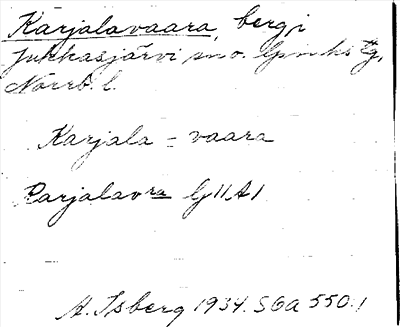 Karjalavaara, berg i
Jukkasjärvi sn o.
Norrb. l.
Karjala = vaara
Karjalavra G11A1
A. Isberg 1934. SOA 550:1